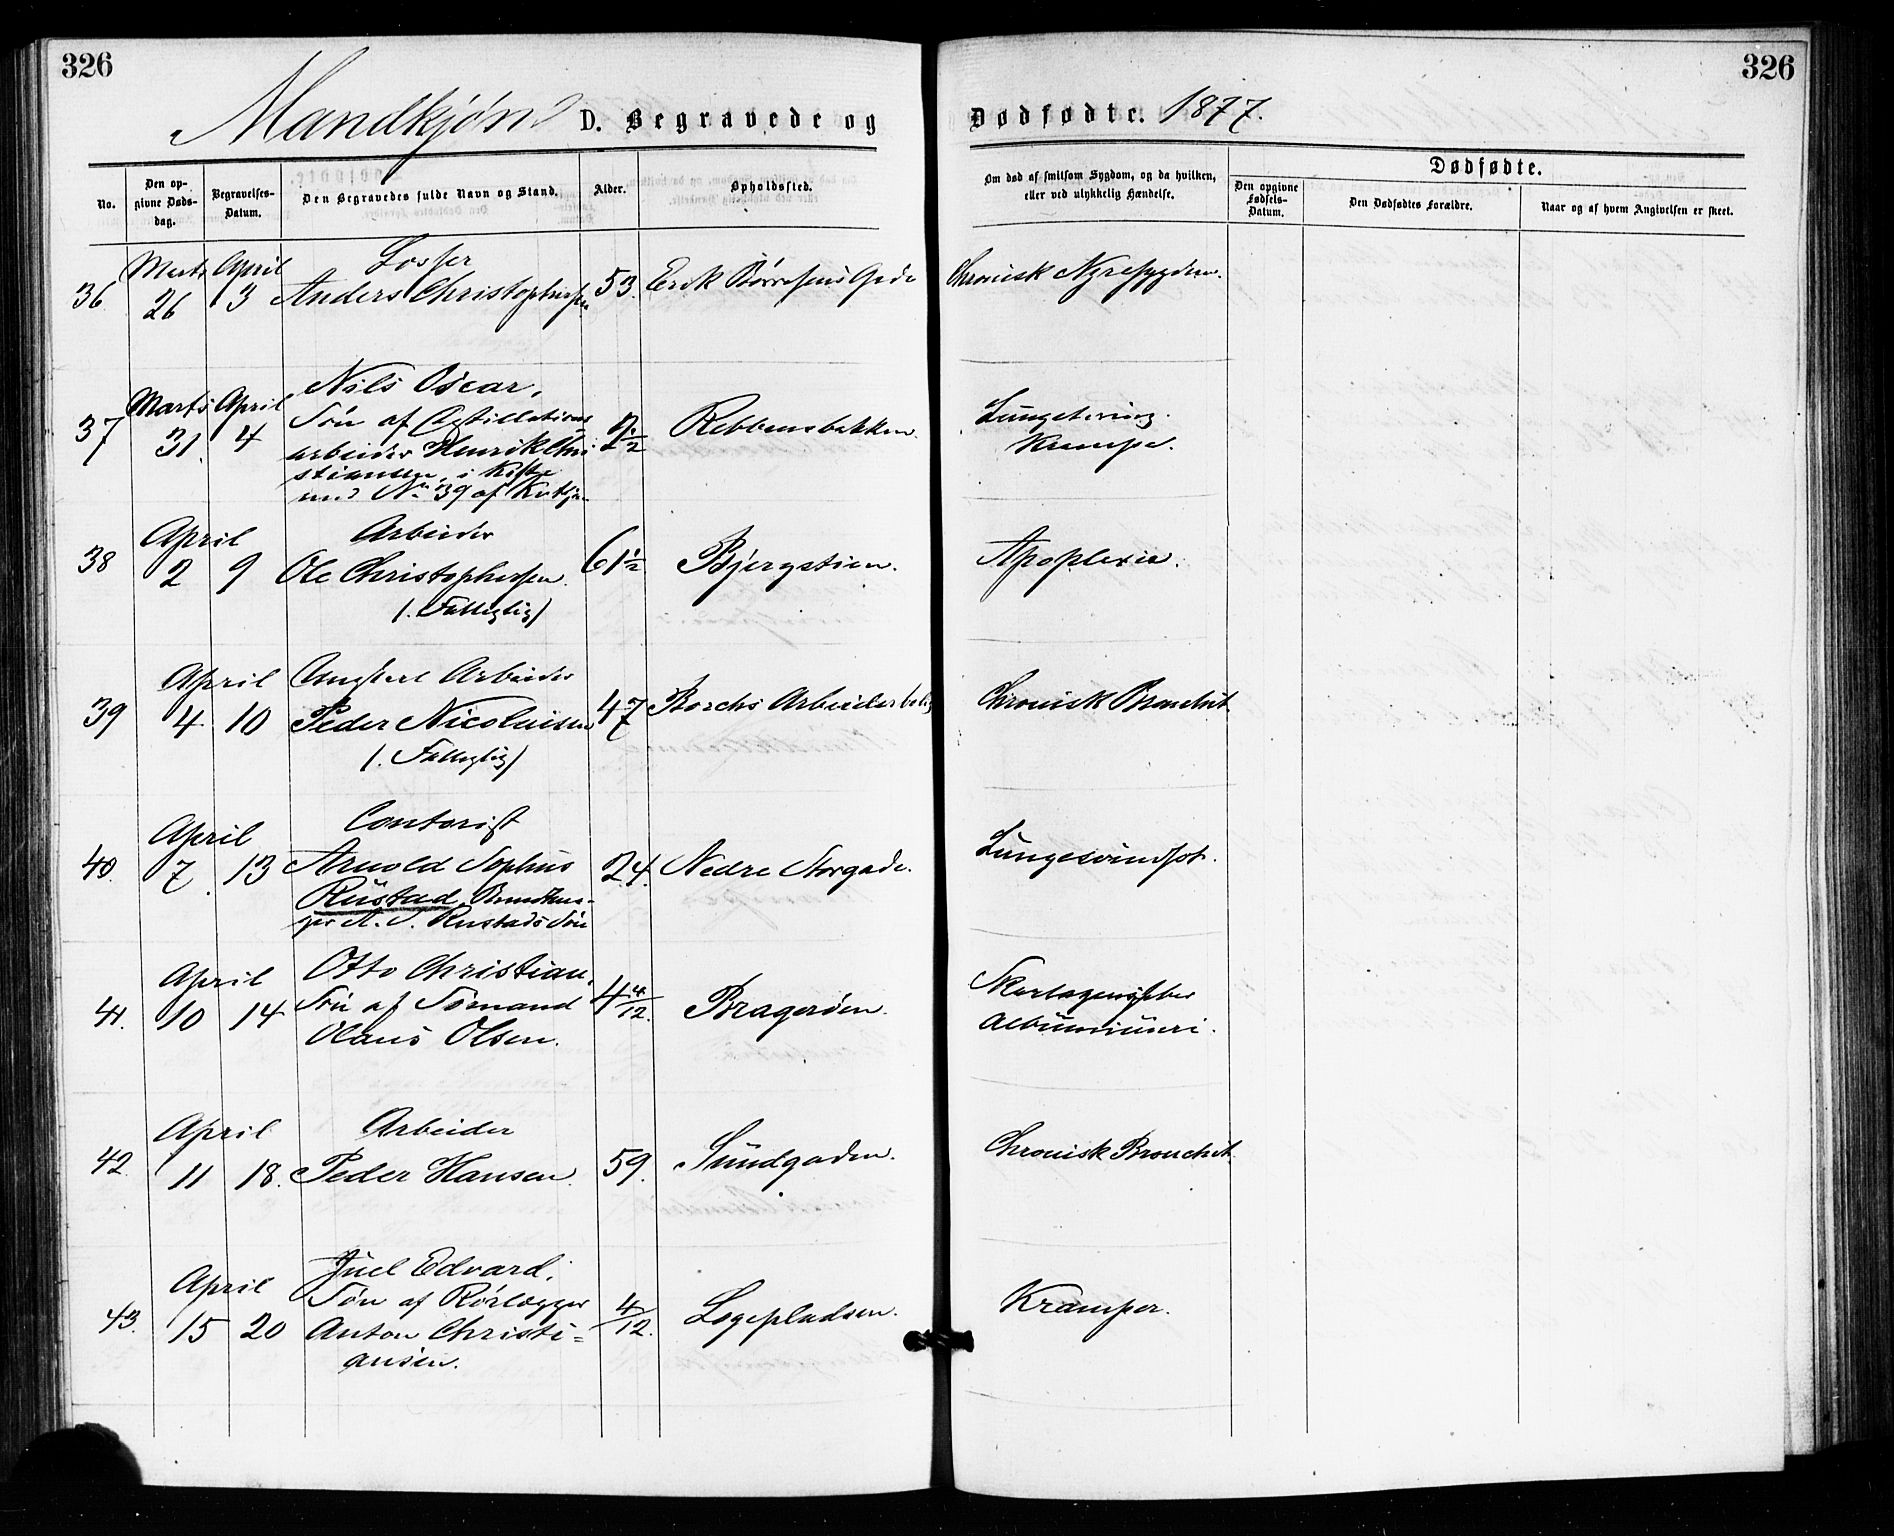 326
326
Mandkjøn D. Begravede og Dødfødte. 1877.
No.
Den op-
givne Døds-
dag.
Begravelses-
Datum.
Den Begravedes fulde Navn og Stand.
Alder.
Opholdssted.
Om død af smitsom Sygdom, og da hvilken,
eller ved ulykkelig Hændelse.
Dødfødte.
Den opgivne
Fødsels-
Datum.
Den Dødfødtes Forældre.
Naar og af hvem Angivelsen er skeet.
Marts April Losser
36 26 3 Anders Christophersen 53. Erik Børresens Gade Chronisk Nyresygdom.
Nils Oscar,
Marts April Søn af Destillations
37 31. 4 arbeider Henrik Chri Rebbansbakken. Lungetæring.
stiansen, i Kiste Krampe.
med No 39 af Kvkjøn
April Arbeider
38 2 9 Ole Christophersen. 61½ Bjergstien. Apoplexie.
(. Fattiglig)
April Arbeider
39 4 10 Peder Nicolaisen 47 Borchs Arbeiderbolig Chronisk Bronchit.
(. Fattiglig)
April Contorist
40. 7. 13 Arnold Sophus 24. Nedre Storgade. Lungesvindsot.
Rustad,
A. S. Rustads Søn
April Otto Christian,
41. 10 14 Søn af Sømand 4 4/12. Bragerøen. Skarlagensfeber
Olaus Olsen. Albuminuri.
April Arbeider
42. 11 18. Peder Hansen. 59. Sundgaden. Chronisk Bronchit.
Juel Edvard,
April Søn af Rørlægger
43. 15 20 Anton Christi= 4/12. Løgepladsen. Kramper.
ansen.